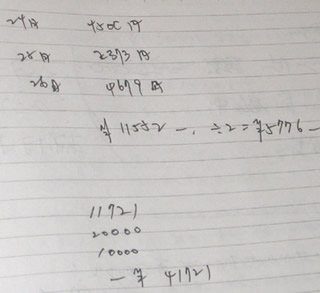 24日 4500円
25日 2373円
26日 4679円
¥11552-. ÷2=¥5776-
11721
20000
10000
- ¥ 41721